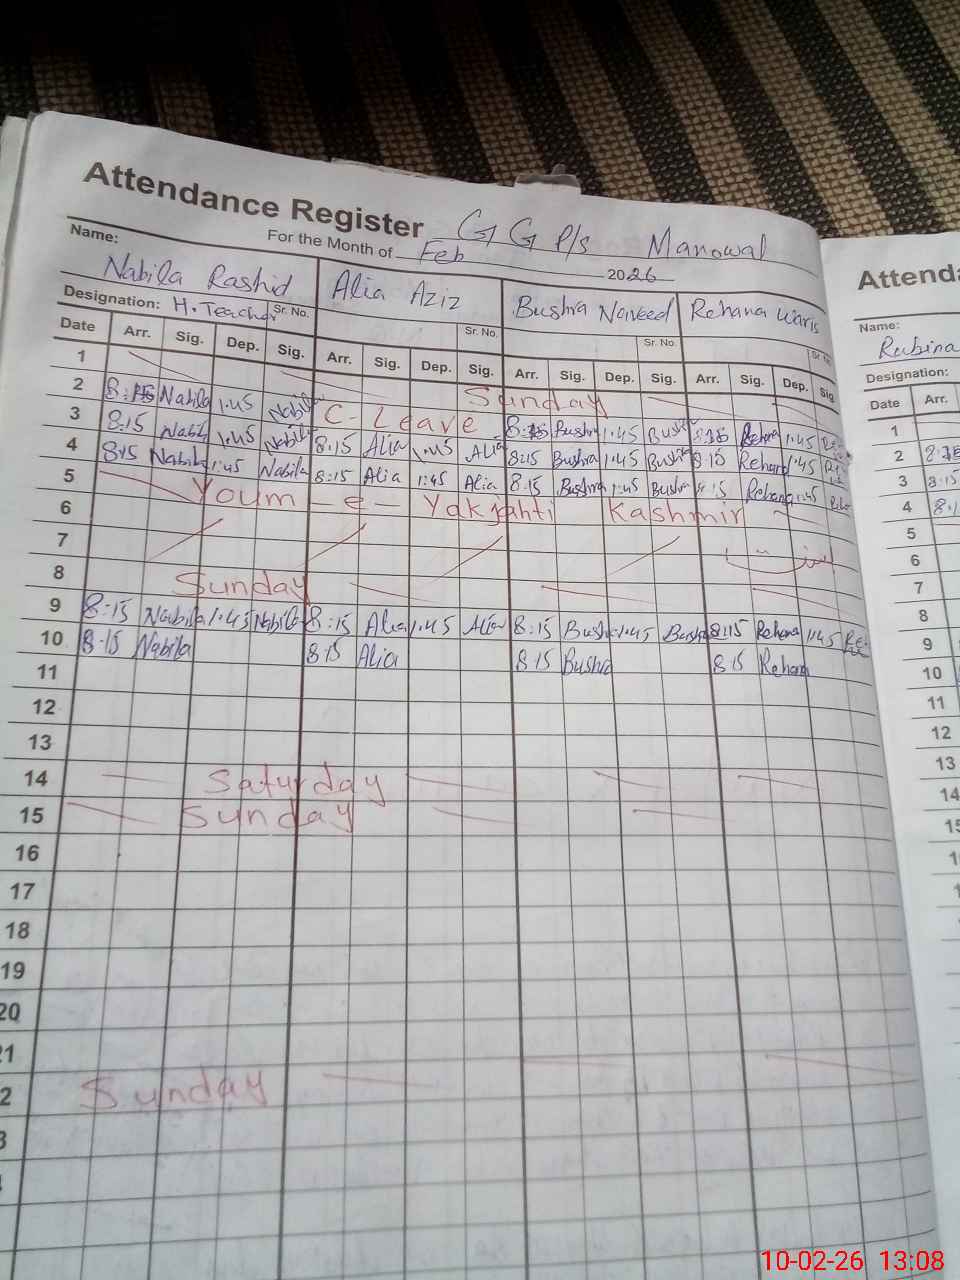 Attendance Register G G P/s Manowal
For the Month of Feb 2026
Name: Nabila Rashid Alia Aziz Bushra Naveed Rehana Waris
Designation: H. Teacher Sr. No. Sr. No. Sr. No.
Date Arr. Sig. Dep. Sig. Arr. Sig. Dep. Sig. Arr. Sig. Dep. Sig. Arr. Sig. Dep. Sig.
1 Sunday
2 8:15 Nabila 1:45 Nabila C-Leave 8:15 Bushra 1:45 Bushra 8:15 Rehana 1:45
3 8:15 Nabila 1:45 Nabila 8:15 Alia 1:45 Alia 8:15 Bushra 1:45 Bushra 8:15 Rehana 1:45
4 8:15 Nabila 1:45 Nabila 8:15 Alia 1:45 Alia 8:15 Bushra 1:45 Bushra 8:15 Rehana 1:45
5 Youm-e-Yakjahti Kashmir
6
7
8 Sunday
9 8:15 Nabila 1:45 Nabila 8:15 Alia 1:45 Alia 8:15 Bushra 1:45 Bushra 8:15 Rehana 1:45
10 8:15 Nabila 8:15 Alia 8:15 Bushra 8:15 Rehana
11
12
13
14 Saturday
15 Sunday
16
17
18
19
20
21
2 Sunday
3
Attenda
Name:
Rubina
Designation:
Date Arr.
1
2
3 8:15
4
5
6
7
8
9
10
11
12
13
14
15
10-02-26 13:08